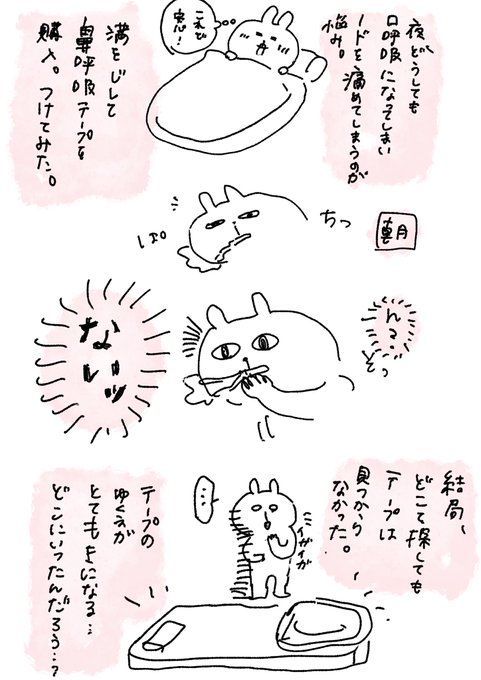 夜どうしても
口呼吸になってしまい
ノドを痛めてしまうのが
悩み。
これで
安心！
満をじして
鼻呼吸テープを
購入。つけてみた。
朝
ちっ
しぱ
ん？
そっ
ないッ
結局、
どこで探しても
テープは
見つから
なかった。
イガイガ
…
テープの
ゆくえが
とてもきになる…
どこにいったんだろう…？